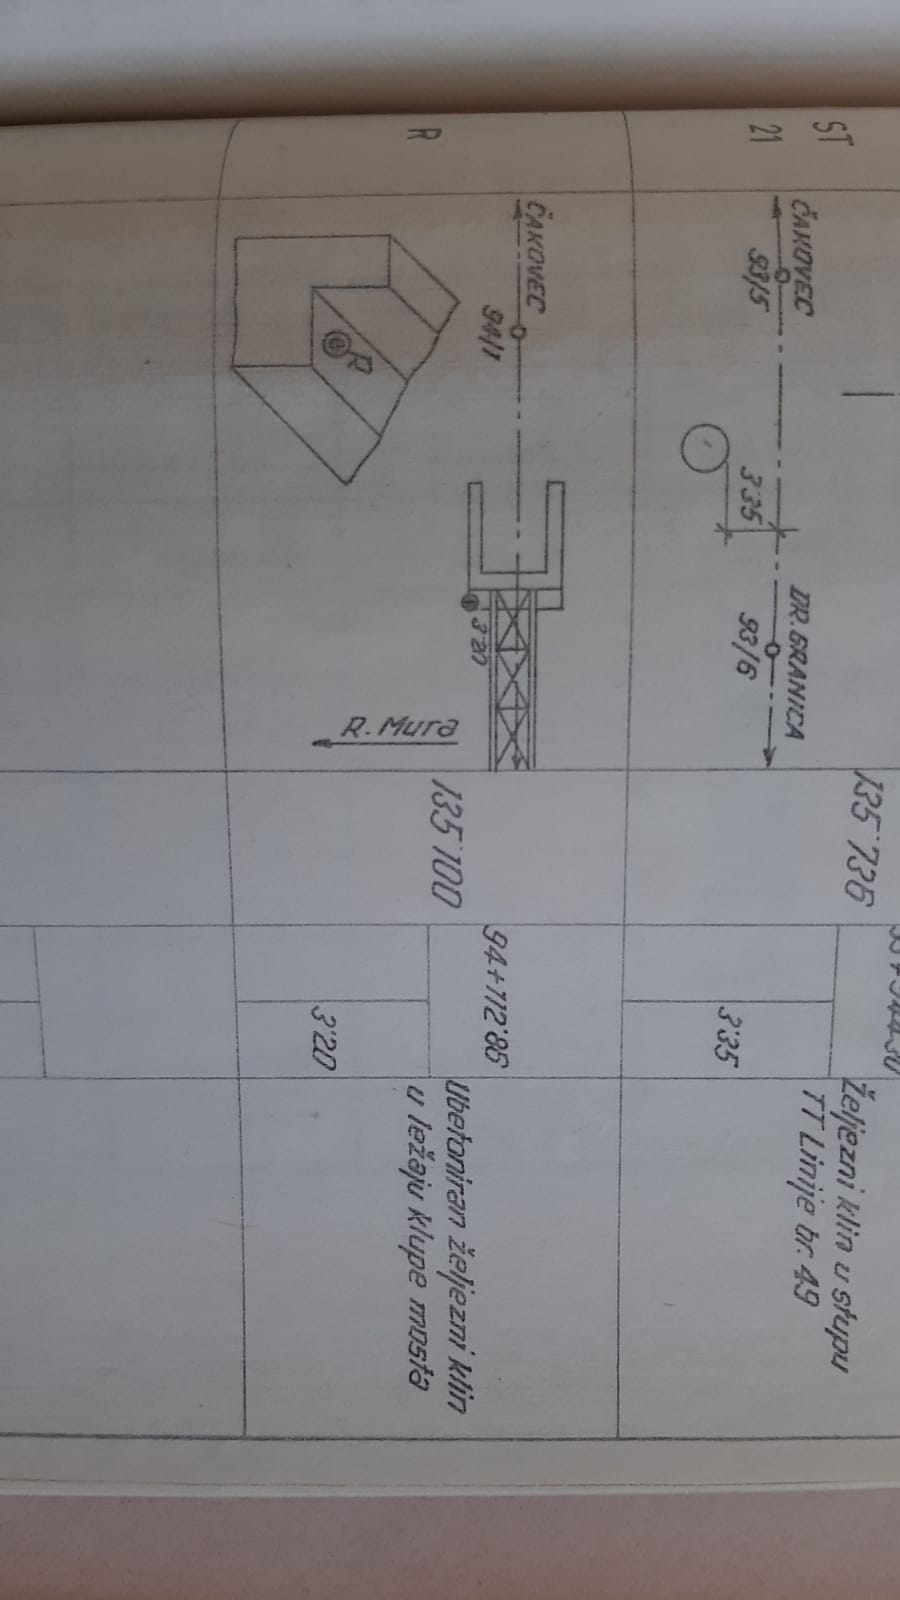 ST
21
ČAKOVEC
93/5
3˙35
DR. GRANICA
93/6
135˙736
3˙35
Željezni klin u stupu
TT Linije br. 49
R
ČAKOVEC
94/1
3˙20
R. Mura
R
135˙100
94+112˙86
3˙20
Ubetoniran željezni klin
u ležaju klupe mosta